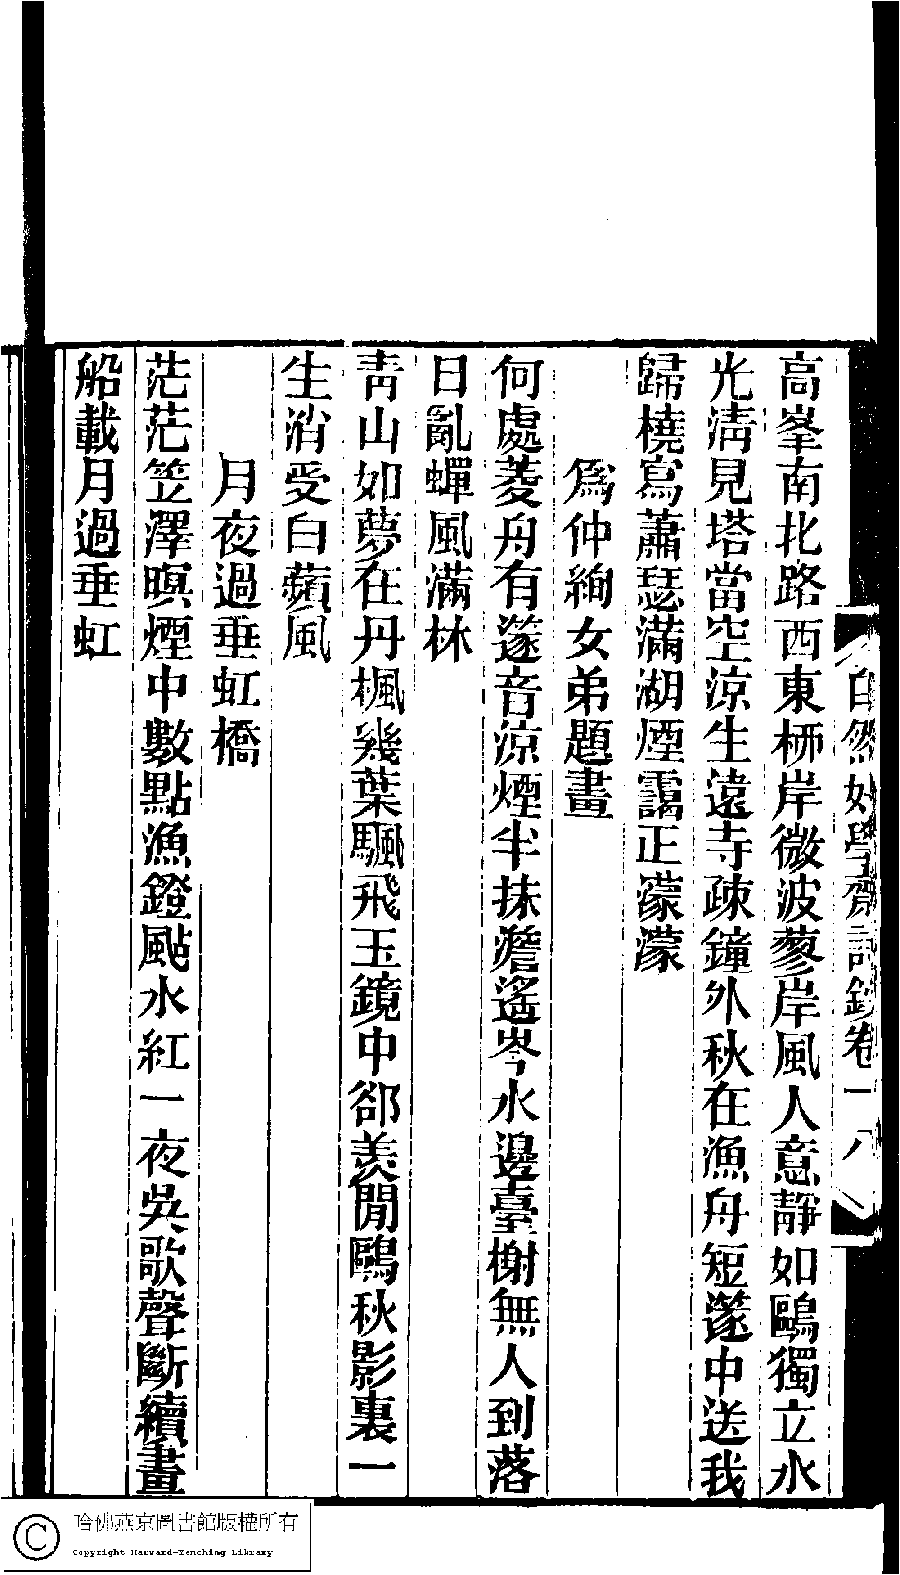 自然好學齋詩鈔卷一 八
高峯南北路西東柳岸微波蓼岸風人意靜如鷗獨立水
光清見塔當空涼生遠寺疎鐘外秋在漁舟短篴中送我
歸橈寫蕭瑟滿湖煙靄正濛濛
爲仲絢女弟題畫
何處菱舟有篴音涼煙半抹澹遙岑水邊臺榭無人到落
日亂蟬風滿林
青山如夢在丹楓幾葉颿飛玉鏡中郤羨閒鷗秋影裏一
生消受白蘋風
月夜過垂虹橋
茫茫笠澤暝煙中數點漁鐙颭水紅一夜吳歌聲斷續畫
船載月過垂虹
哈佛燕京圖書館版權所有
Copyright Harvard-Yenching Library